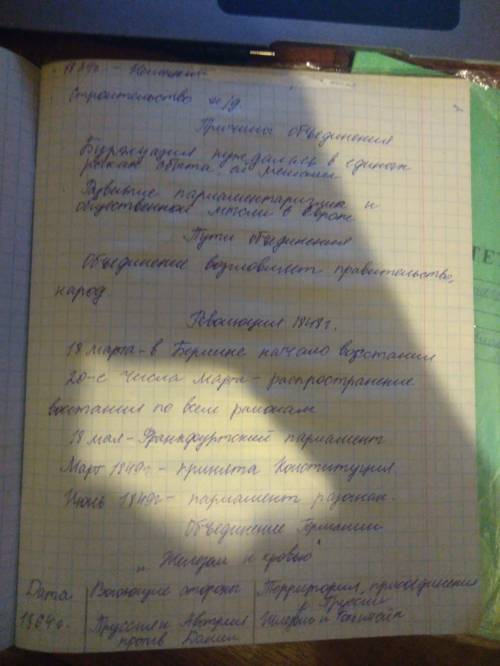 Строительство ж/д
Причины объединения
Буржуазия нуждалась в едином
рынке сбыта
Развитие парламентаризма и
общественной мысли в Европе
Пути объединения
Объединение возглавляет правительство,
народ
Революция 1848г.
18 марта - в Берлине начало восстания
20-е числа марта - распространение
восстания по всем районам
18 мая - Франкфуртский парламент
Март 1849г - принята Конституция
Июнь 1849г - парламент разогнан.
Объединение Германии
„Железом и кровью"
Дата Воюющие стороны Территория, присоединения
к Пруссии
1864г. Пруссия и Австрия Шлезвиг и Гольштейн
против Дании